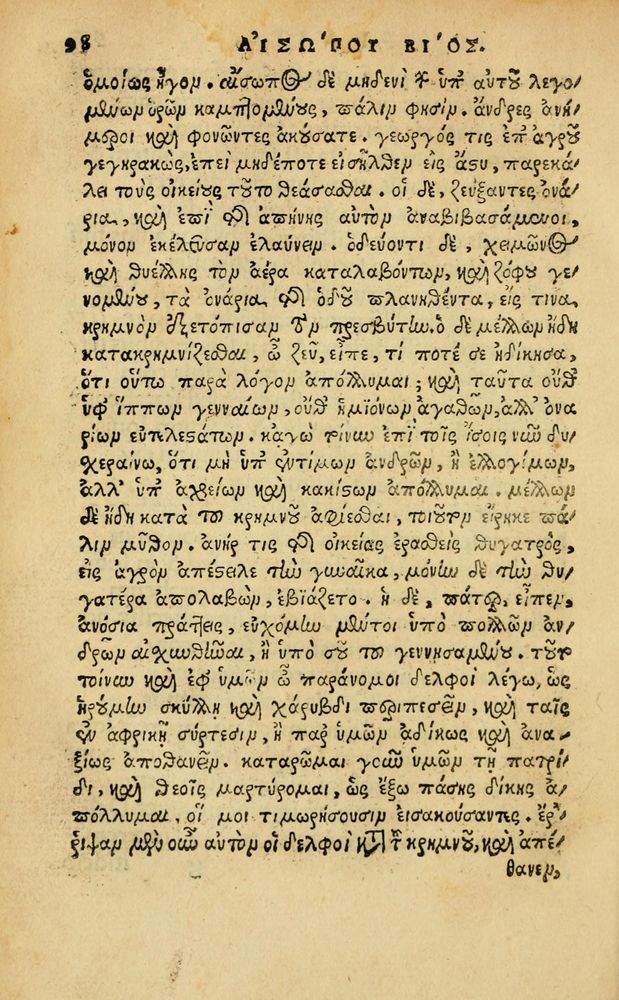 98 ΑΙΣΩΠΟΥ ΒΙΌΣ.
ὁμοίως ἦγον. αἴσωπος δὲ μηδενὶ τ ὑπ αὐτοῦ λεγο/
μένων ὁρῶν καμπτομένους, πάλιν φησίν. ἄνδρες ἀνή/
μεροι καὶ φονῶντες ἀκούσατε. γεωργός τις ἐπ ἀγροῦ
γεγηρακὼς, ἐπεὶ μηδέποτε εἰσῆλθεν εἰς ἄστυ, παρεκά/
λει τοὺς οἰκείους τοῦτο θεάσασθαι. οἱ δὲ, ζεύξαντες ὀνά/
ρια, καὶ ἐπὶ τῆς ἀπήνης αὐτὸν ἀναβιβασάμενοι,
μόνον ἐκέλευσαν ἐλαύνειν. ὁδεύοντι δὲ, χειμῶνος
καὶ θυέλλης τὸν ἀέρα καταλαβόντων, καὶ ζόφου γε/
νομένου, τὰ ὀνάρια τῆς ὁδοῦ πλανηθέντα, εἴς τινα
κρημνὸν ἐξετόπισαν τὸν πρεσβύτην. ὁ δὲ μέλλων ἤδη
κατακρημνίζεσθαι, ὦ ζεῦ, εἶπε, τί ποτέ σε ἠδίκησα,
ὅτι οὕτω παρὰ λόγον ἀπόλλυμαι; καὶ ταῦτα οὔθ
ὑφ ἵππων γενναίων, οὔθ ἡμιόνων ἀγαθῶν, ἀλλ' ὀνα
ρίων εὐτελεστάτων. κἀγὼ τοίνυν ἐπὶ τοῖς ἴσοις νῦν δυ/
χεραίνω, ὅτι μὴ ὑπ ἐντίμων ἀνδρῶν, ἢ ἐλλογίμων,
ἀλλ' ὑπ ἀχρείων καὶ κακίστων ἀπόλλυμαι. μέλλων
δὲ ἤδη κατὰ τοῦ κρημνοῦ ἀφίεσθαι, τοιοῦτον εἴρηκε πά/
λιν μῦθον. ἀνήρ τις τῆς οἰκείας ἐρασθεὶς θυγατρὸς,
εἰς ἀγρὸν ἀπέστειλε τὴν γυναῖκα, μόνην δὲ τὴν θυ/
γατέρα ἀπολαβὼν, ἐβιάζετο. ἡ δὲ, πάτερ, εἶπεν,
ἀνόσια πράττεις, εὐχόμην μέντοι ὑπὸ πολλῶν ἀν/
δρῶν αἰσχυνθῆναι, ἢ ὑπὸ σοῦ τοῦ γεννησαμένου. τοῦτ
τοίνυν καὶ ἐφ ὑμῶν ὦ παράνομοι δελφοὶ λέγω, ὡς
ᾑρούμην σκύλλῃ καὶ χάρυβδι περιπεσεῖν, καὶ ταῖς
ἐν ἀφρικῇ σύρτεσιν, ἢ παρ ὑμῶν ἀδίκως καὶ ἀνα/
ξίως ἀποθανεῖν. καταρῶμαι γοῦν ὑμῶν τῇ πατρί/
δι, καὶ θεοῖς μαρτύρομαι, ὡς ἔξω πάσης δίκης ἀ/
πόλλυμαι, οἵ μοι τιμωρήσουσιν εἰσακούσαντες. ἔρ/
ριψαν μὲν οὖν αὐτὸν οἱ δελφοὶ κατὰ τοῦ κρημνοῦ, καὶ ἀπέ/
θανεν,